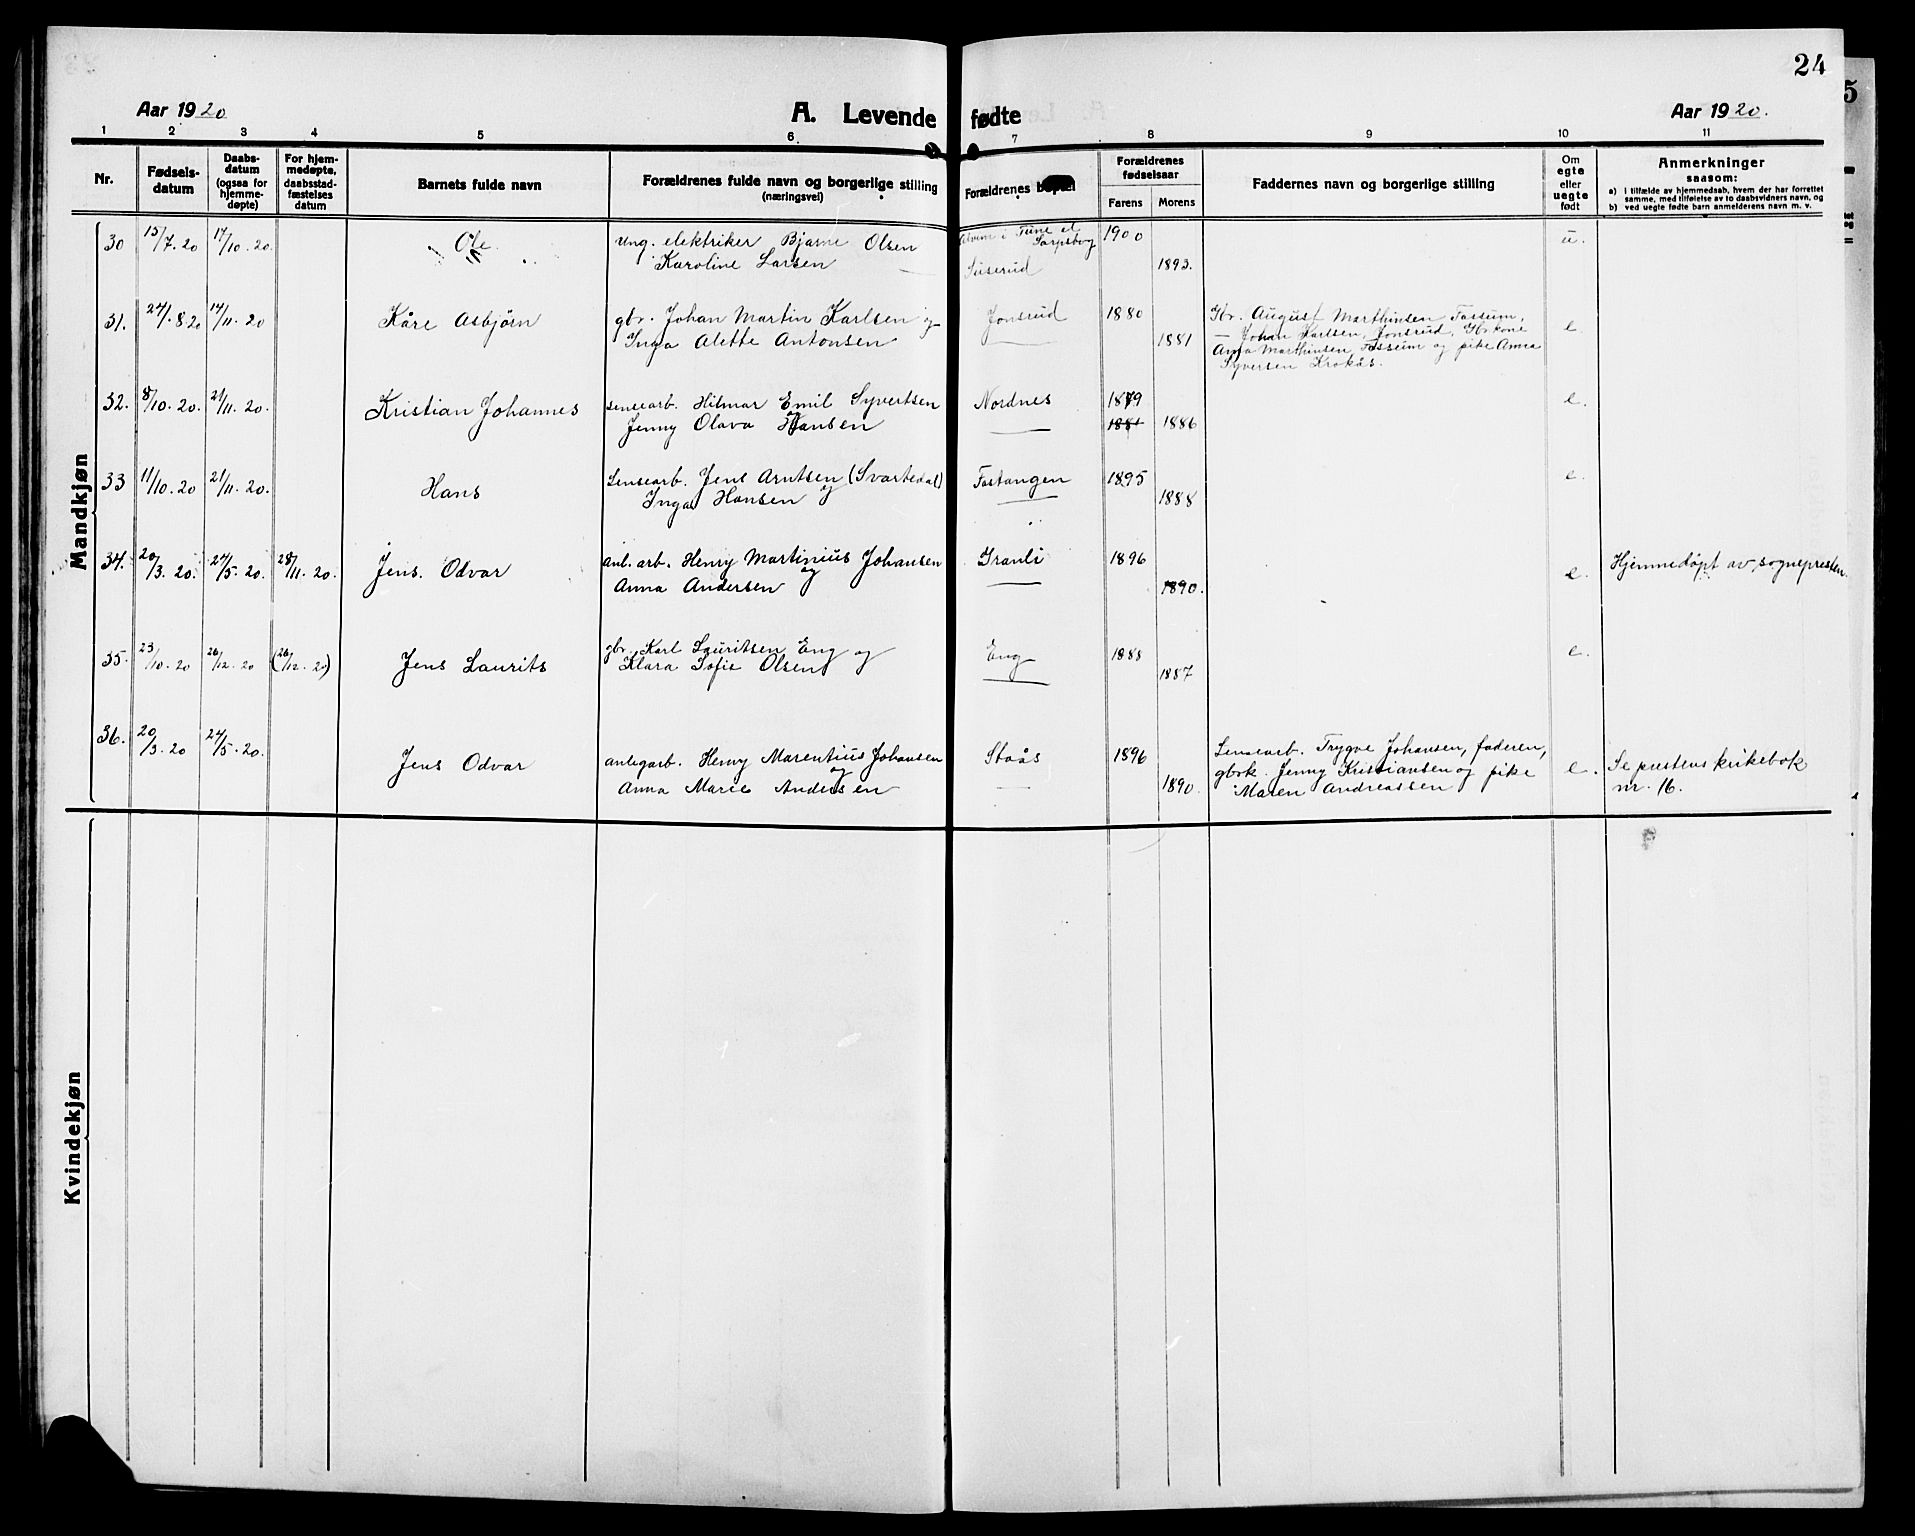 24
Aar 1920
A. Levende fødte
Aar 1920.
1 2 3 4 5 6 7 8 9 10 11
Nr.
Fødsels-
datum
Daabs-
datum
(ogsaa for
hjemme-
døpte)
For hjem-
medøpte,
daabsstad-
fæstelses
datum
Barnets fulde navn
Forældrenes fulde navn og borgerlige stilling
(næringsvei)
Forældrenes
Forældrenes
fødselsaar
Farens
Morens
Faddernes navn og borgerlige stilling
Om
egte
eller
uegte
født
Anmerkninger
saasom:
a) i tilfælde av hjemmedaab, hvem der har forrettet
samme, med tilføielse av to daabsvidners navn, og
b) ved uegte fødte barn anmelderens navn m. v.
Mandkjøn
30 15/7.20 17/10.20. Ole ung. elektriker Bjarne Olsen i Tune el. Sarpsborg 1900 u.
Karoline Larsen Süserud 1893.
31. 24/8.20 14/11.20 Kåre Asbjørn gbr. Johan Martin Karlsen og Jonsrud 1880 e.
Inga Alette Antonsen 1881
Gbr. August Marthinsen Fossum,
— Johan Karlsen, Jonsrud, Gbrkone
Anna Marthinsen, Fossum og pike Anna
Syversen Krokås.
32. 8/10.20. 21/11.20. Kristian Johannes lensearb. Hilmar Emil Syvertsen og Nordnes 1879 e.
Jenny Olava Hansen 1881 1886
33 11/10.20 21/11.20. Hans Lensearb. Jens Arntsen (Svartedal) og Fostangen 1895 e.
Inga Hansen 1888
34. 20/3.20. 24/5.20. 28/11.20. Jens Odvar anl. arb. Henry Martinius Johansen og Granli 1896 e. Hjemmedøpt av sognepresten.
Anna Andersen 1890.
35. 23/10.20 26/12.20 (26/12.20) Jens Laurits gbr. Karl Lauritsen Eng og Eng 1888 e.
Klara Sofie Olsen 1887
36. 20/3.20 24/5.20. Jens Odvar anlegarb. Henry Marentius Johansen og 1896 e.
Anna Marie Andersen 1890.
Lensearb. Trygve Johansen, faderen,
gbrk. Jenny Kristiansen og pike
Maren Andreassen
Se prestens kirkebok
nr. 16.
Kvindekjøn